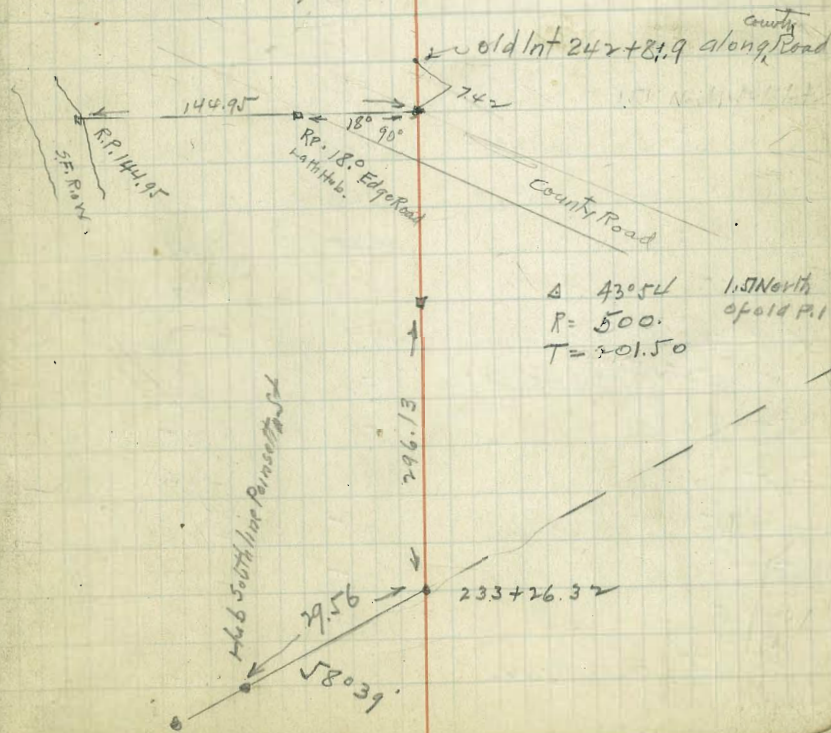 county
old Int 242+81.9 along Road
7.42
144.95
18° 90°
R.P. 144.95
S.F. R.O.W
RP. 18.° Edge Road
Lath Hub.
County Road
Δ 43°54
R= 500.
T= 201.50
1.51 North
of old P.I
296.13
Hub South line Poinsettia St
29.56
233+26.32
58°39'